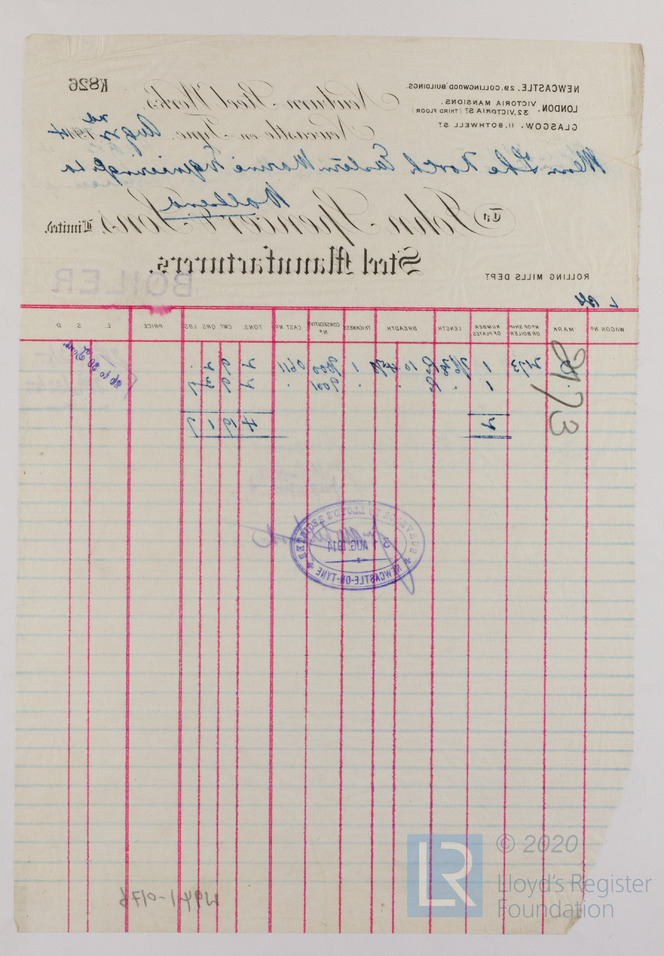 K826
NEWCASTLE. 29. COLLINGWOOD BUILDINGS.
LONDON. VICTORIA MANSIONS. 32. VICTORIA ST (THIRD FLOOR)
GLASGOW. 11. BOTHWELL ST.
Newburn Steel Works,
Newcastle on Tyne, Aug 1914
Mess The North Eastern Marine Engineering Co Ld
Wallsend
To John Spencer & Sons Limited.
Steel Manufacturers.
ROLLING MILLS DEPT
BOILER
WAGON No MARK No OF SHIP OR BOILER NUMBER OF PLATES LENGTH BREADTH THICKNESS CONSECUTIVE No CAST No TONS. CWT QRS LBS PRICE L S D
2173
2173 1
1
2 4 19 1 7
SURVEYORS TO LLOYD'S REGISTER
AUG. 1914
NEWCASTLE-ON-TYNE
W941-0176
LR © 2020
Lloyd's Register
Foundation